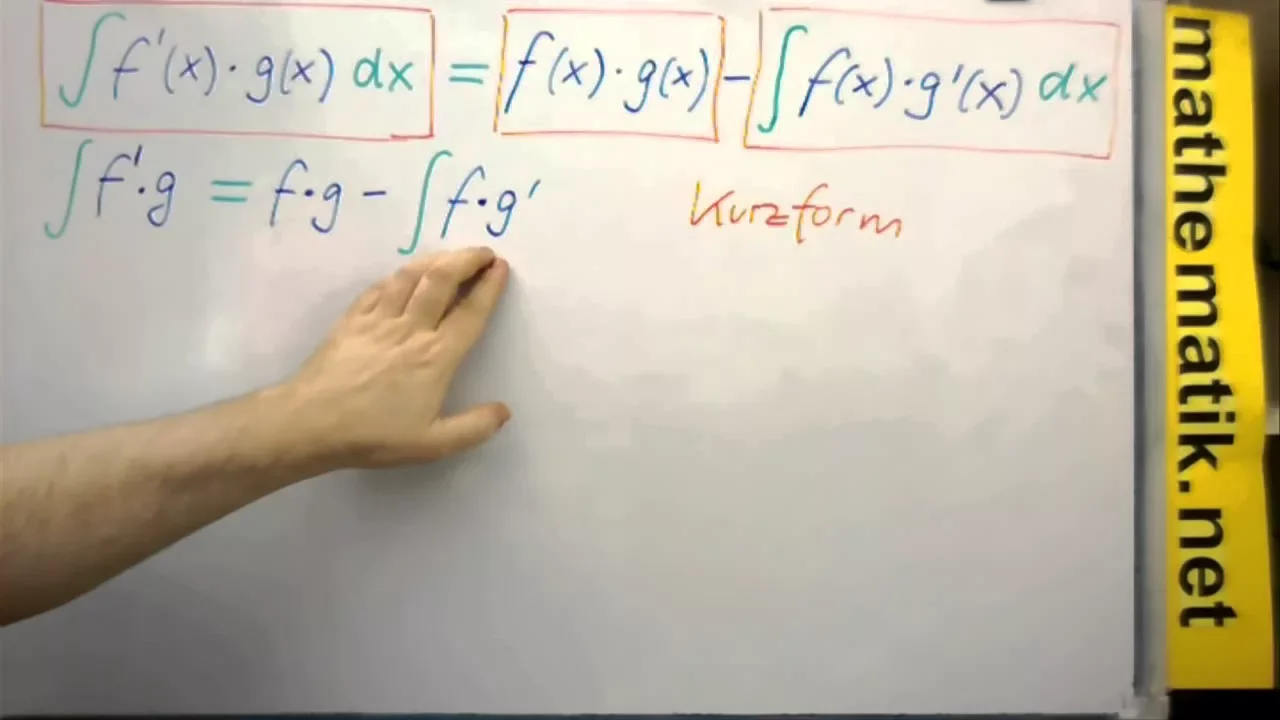 ∫ f'(x) · g(x) dx = f(x) · g(x) - ∫ f(x) · g'(x) dx
∫ f' · g = f · g - ∫ f · g'
Kurzform
mathematik.net